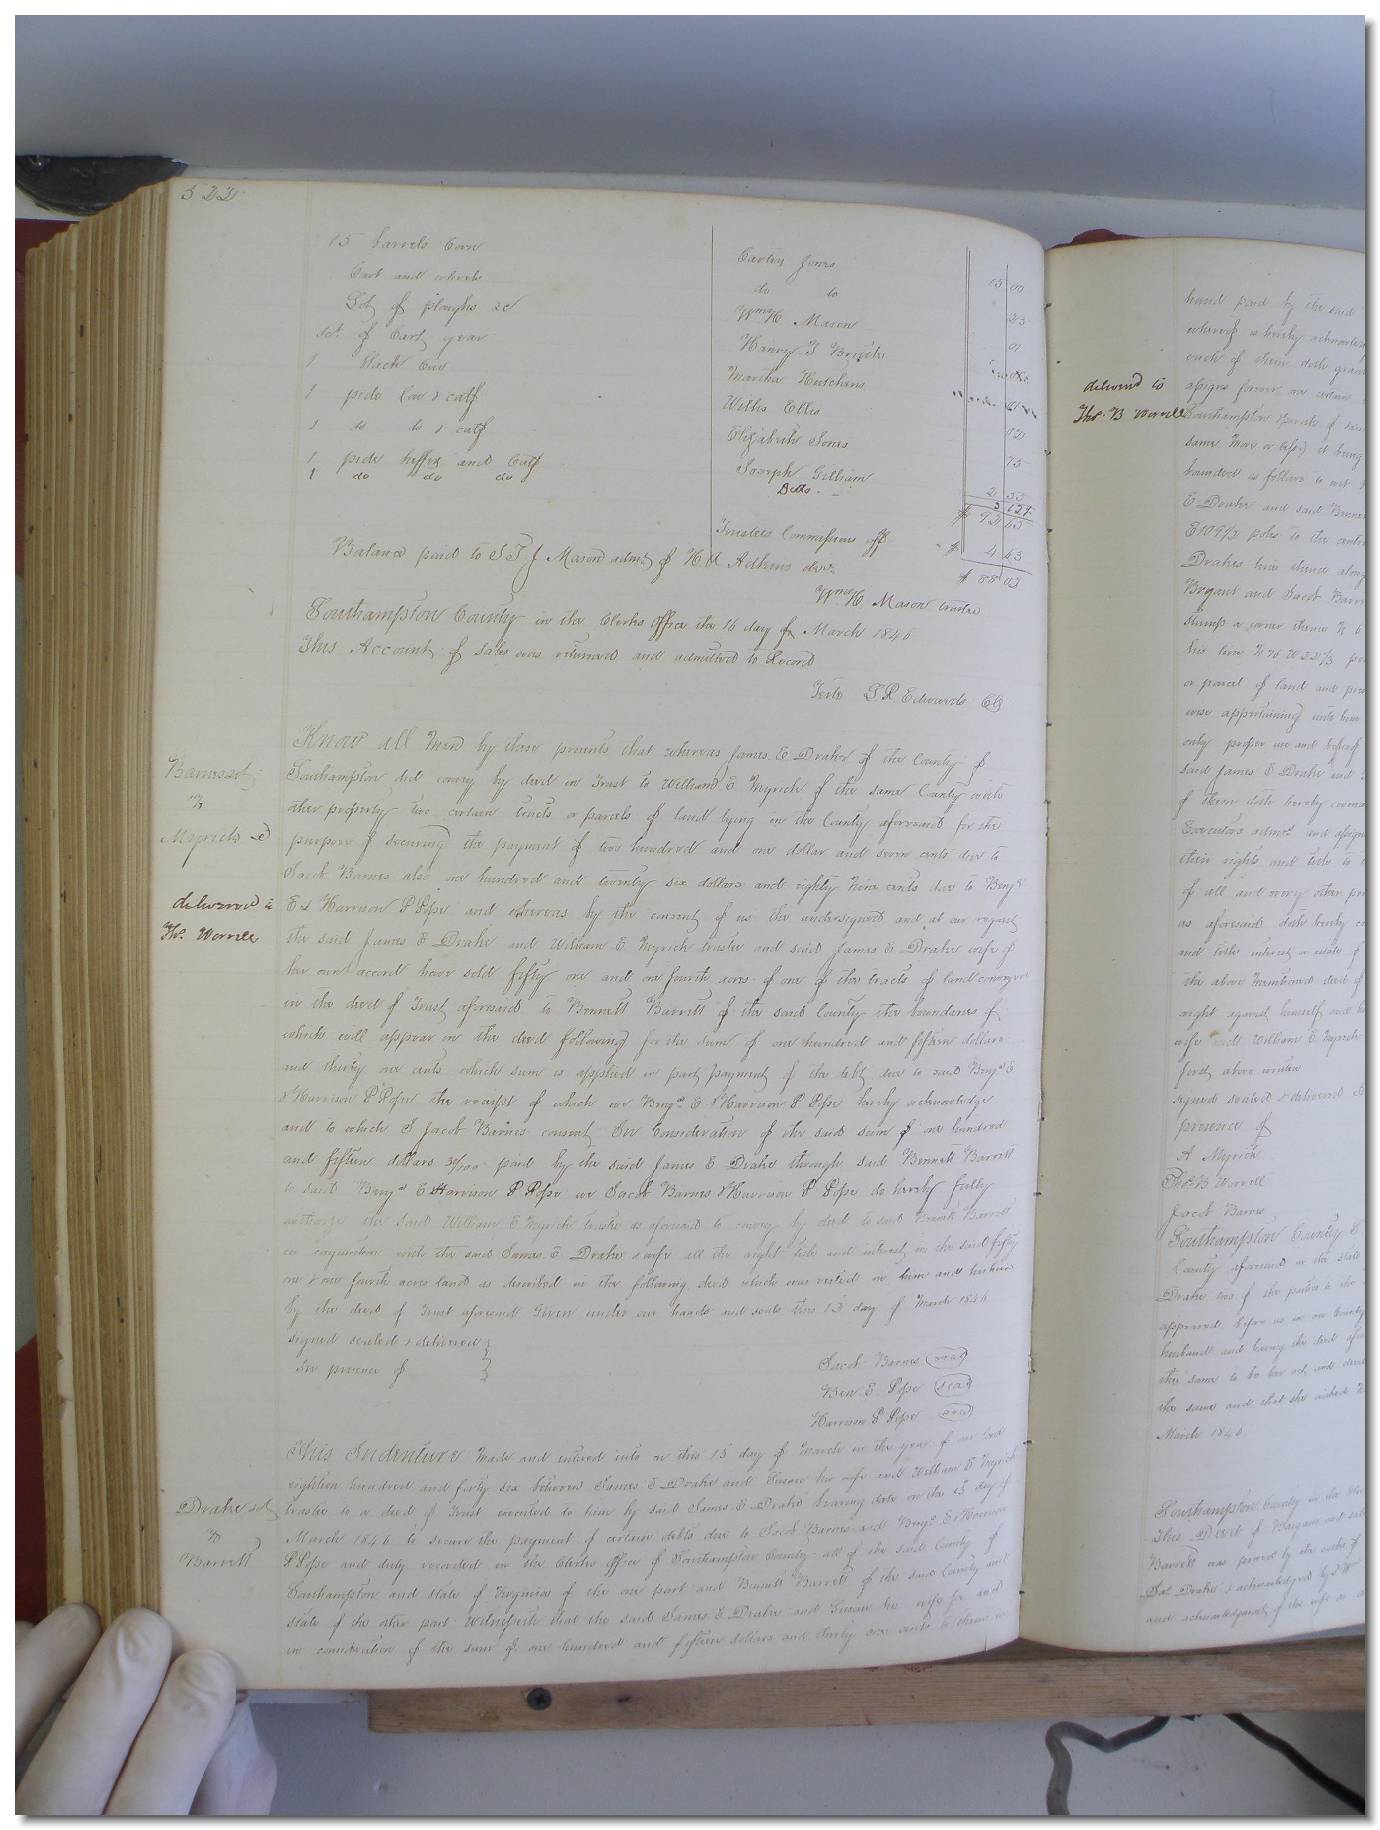 522
15 barrels Corn Carley Jones 15 00
Cart and wheels do do 25
Set of ploughs &c Wm H Mason 01
set of Cart gear Henry T Barrett
1 black Cow Martha Hutchens
1 pide Cow & calf Willis Ellis
1 do do & calf Elizabeth Jones
1 pide heffer and Calf Joseph Gilliam
1 do do do Ditto
$ 92 43
Trustees Commissions off $ 4 43
Balance paid to S T J Mason admr of H A Adkins decd $ 88
Wm H Mason trustee
Southampton County in the Clerks Office the 16 day of March 1846
This Account of Sales was returned and admitted to Record
Teste L R Edwards Clk
Barnes &c
To
Myrick &c
delivered to
Tho. Worrell
Know all Men by these presents that whereas James E Drake of the County of
Southampton did convey by deed in Trust to William E Myrick of the same County with
other property two certain tracts or parcels of land lying in the County aforesaid for the
purpose of securing the payment of two hundred and one dollar and seven cents due to
Jacob Barnes also one hundred and twenty six dollars and eighty nine cents due to Benjn
E & Harrison P Pope and whereas by the consent of us the undersigned and at our request
the said James E Drake and William E Myrick trustee and said James E Drake wife of
her own accord have sold fifty one and one fourth acres of one of the tracts of land conveyed
in the deed of Trust aforesaid to Bennett Barrett of the said County the boundaries of
which will appear in the deed following for the sum of one hundred and fifteen dollars
and thirty one cents which sum is applied in part payment of the debt due to said Benjn E
& Harrison P Pope the receipt of which we Benjn E & Harrison P Pope hereby acknowledge
and to which I Jacob Barnes consent In Consideration of the said sum of one hundred
and fifteen dollars 31/100 paid by the said James E Drake through said Bennett Barrett
to said Benjn E & Harrison P Pope we Jacob Barnes & Harrison P Pope do hereby fully
authorize the said William E Myrick trustee as aforesaid to convey by deed to said Bennett Barrett
in conjunction with the said James E Drake & wife all the right title and interest in the said fifty
one & one fourth acres land as described in the following deed which was vested in him and his heirs
by the deed of Trust aforesaid Given under our hands and seals this 13 day of March 1846
signed sealed & delivered
In presence of
Jacob Barnes seal
Ben E Pope seal
Harrison P Pope seal
Drake &c
To
Barrett
This Indenture Made and entered into on this 13 day of March in the year of our Lord
eighteen hundred and forty six between James E Drake and Susan his wife and William E Myrick
trustee in a deed of Trust executed to him by said James E Drake bearing date on the 13 day of
March 1846 to secure the payment of certain debts due to Jacob Barnes and Benjn E & Harrison
P Pope and duly recorded in the Clerks Office of Southampton County all of the said County of
Southampton and state of Virginia of the one part and Bennett Barrett of the said County and
state of the other part Witnesseth that the said James E Drake and Susan his wife for and
in consideration of the sum of one hundred and fifteen dollars and thirty one cents to them in
delivered to
Tho. B Worrell
hand paid by the said
whereof is hereby acknowled
each of them doth grant
assigns forever one certain
Southampton Parish of
same more or less it being
bounded as follows to wit
E Drake and said Bennett
E 109 1/2 poles to the centre
Drakes line thence along
Bryant and Jacob Barn
stump a corner thence N 6
his line N 76 W 22 1/3 po
or parcel of land and pre
wise appertaining unto him
only proper use and behoof
said James E Drake and
of them doth hereby covena
Executors admrs and assigns
their rights and title to
of all and every other per
as aforesaid doth hereby co
and title interest or estate of
the above mentioned deed of
right against himself and h
wife and William E Myrick
first above written
signed sealed & delivered
presence of
A Myrick
Tho. B Worrell
Jacob Barnes
Southampton County
County aforesaid in the state
Drake two of the parties to the
appeared before us in our County
husband and having the deed afore
the same to be her act and deed
the same and that she wished
March 1846
Southampton County in the Clerks
This Deed of Bargain and sale
Barrett was proved by the oaths of
Jas Drake & acknowledged by
and acknowledgment of the wife